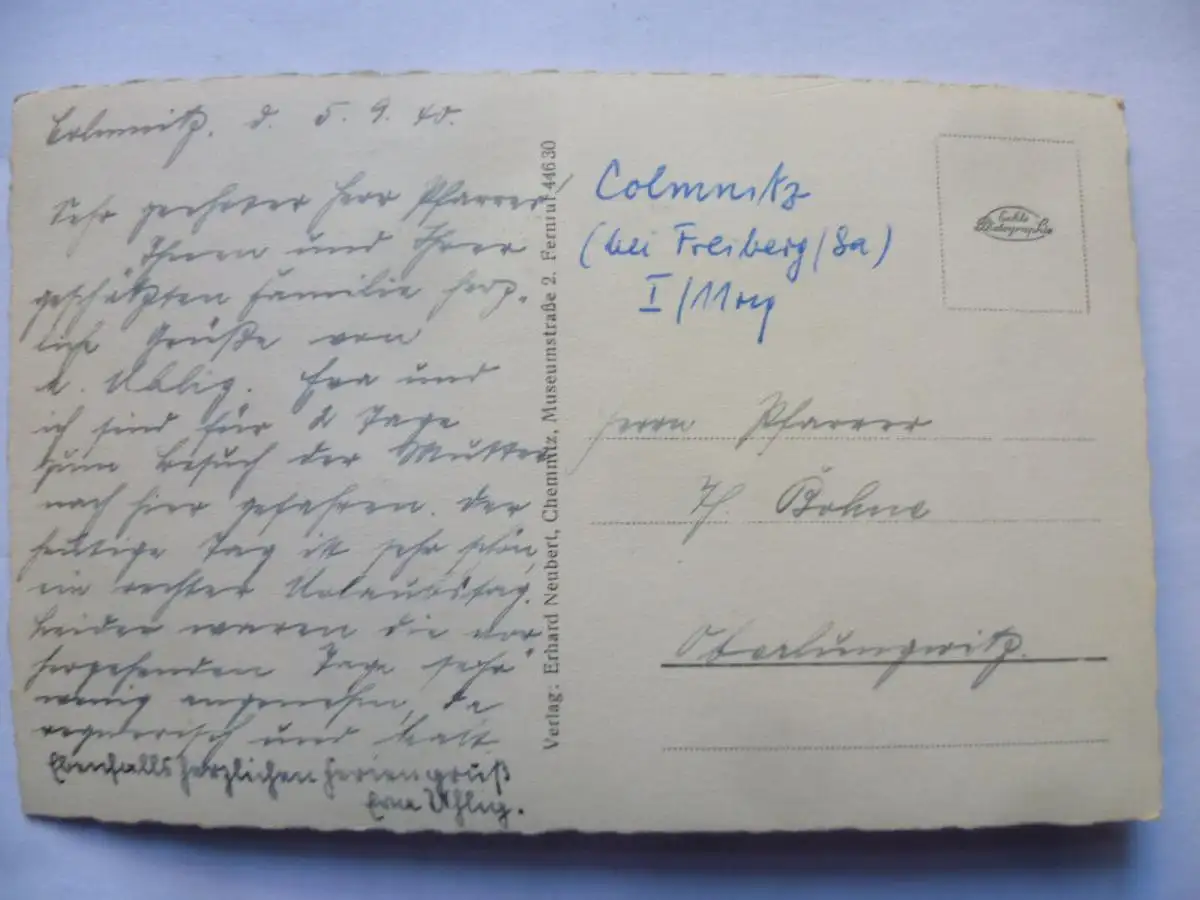 Colmnitz. d. 5. 9. 40.
Sehr geehrter Herr Pfarrer!
Ihnen und Ihrer
geschätzten Familie herz-
liche Grüße von
Uhlig. und
ich sind für 2 Tage
zum Besuch der Mutter
nach hier gefahren. Der
heutige Tag ist sehr schön,
ein rechter Urlaubstag.
Leider waren die vor-
hergehenden Tage sehr
wenig angenehm, da
regnerisch und kalt.
Ebenfalls herzlichen Feriengruß
Uhlig.
Verlag: Erhard Neubert, Chemnitz, Museumstraße 2. Fernruf 44630
Colmnitz
(bei Freiberg/Sa)
Echte
Photographie
Herrn Pfarrer
Th. Bohne
Oberlungwitz.